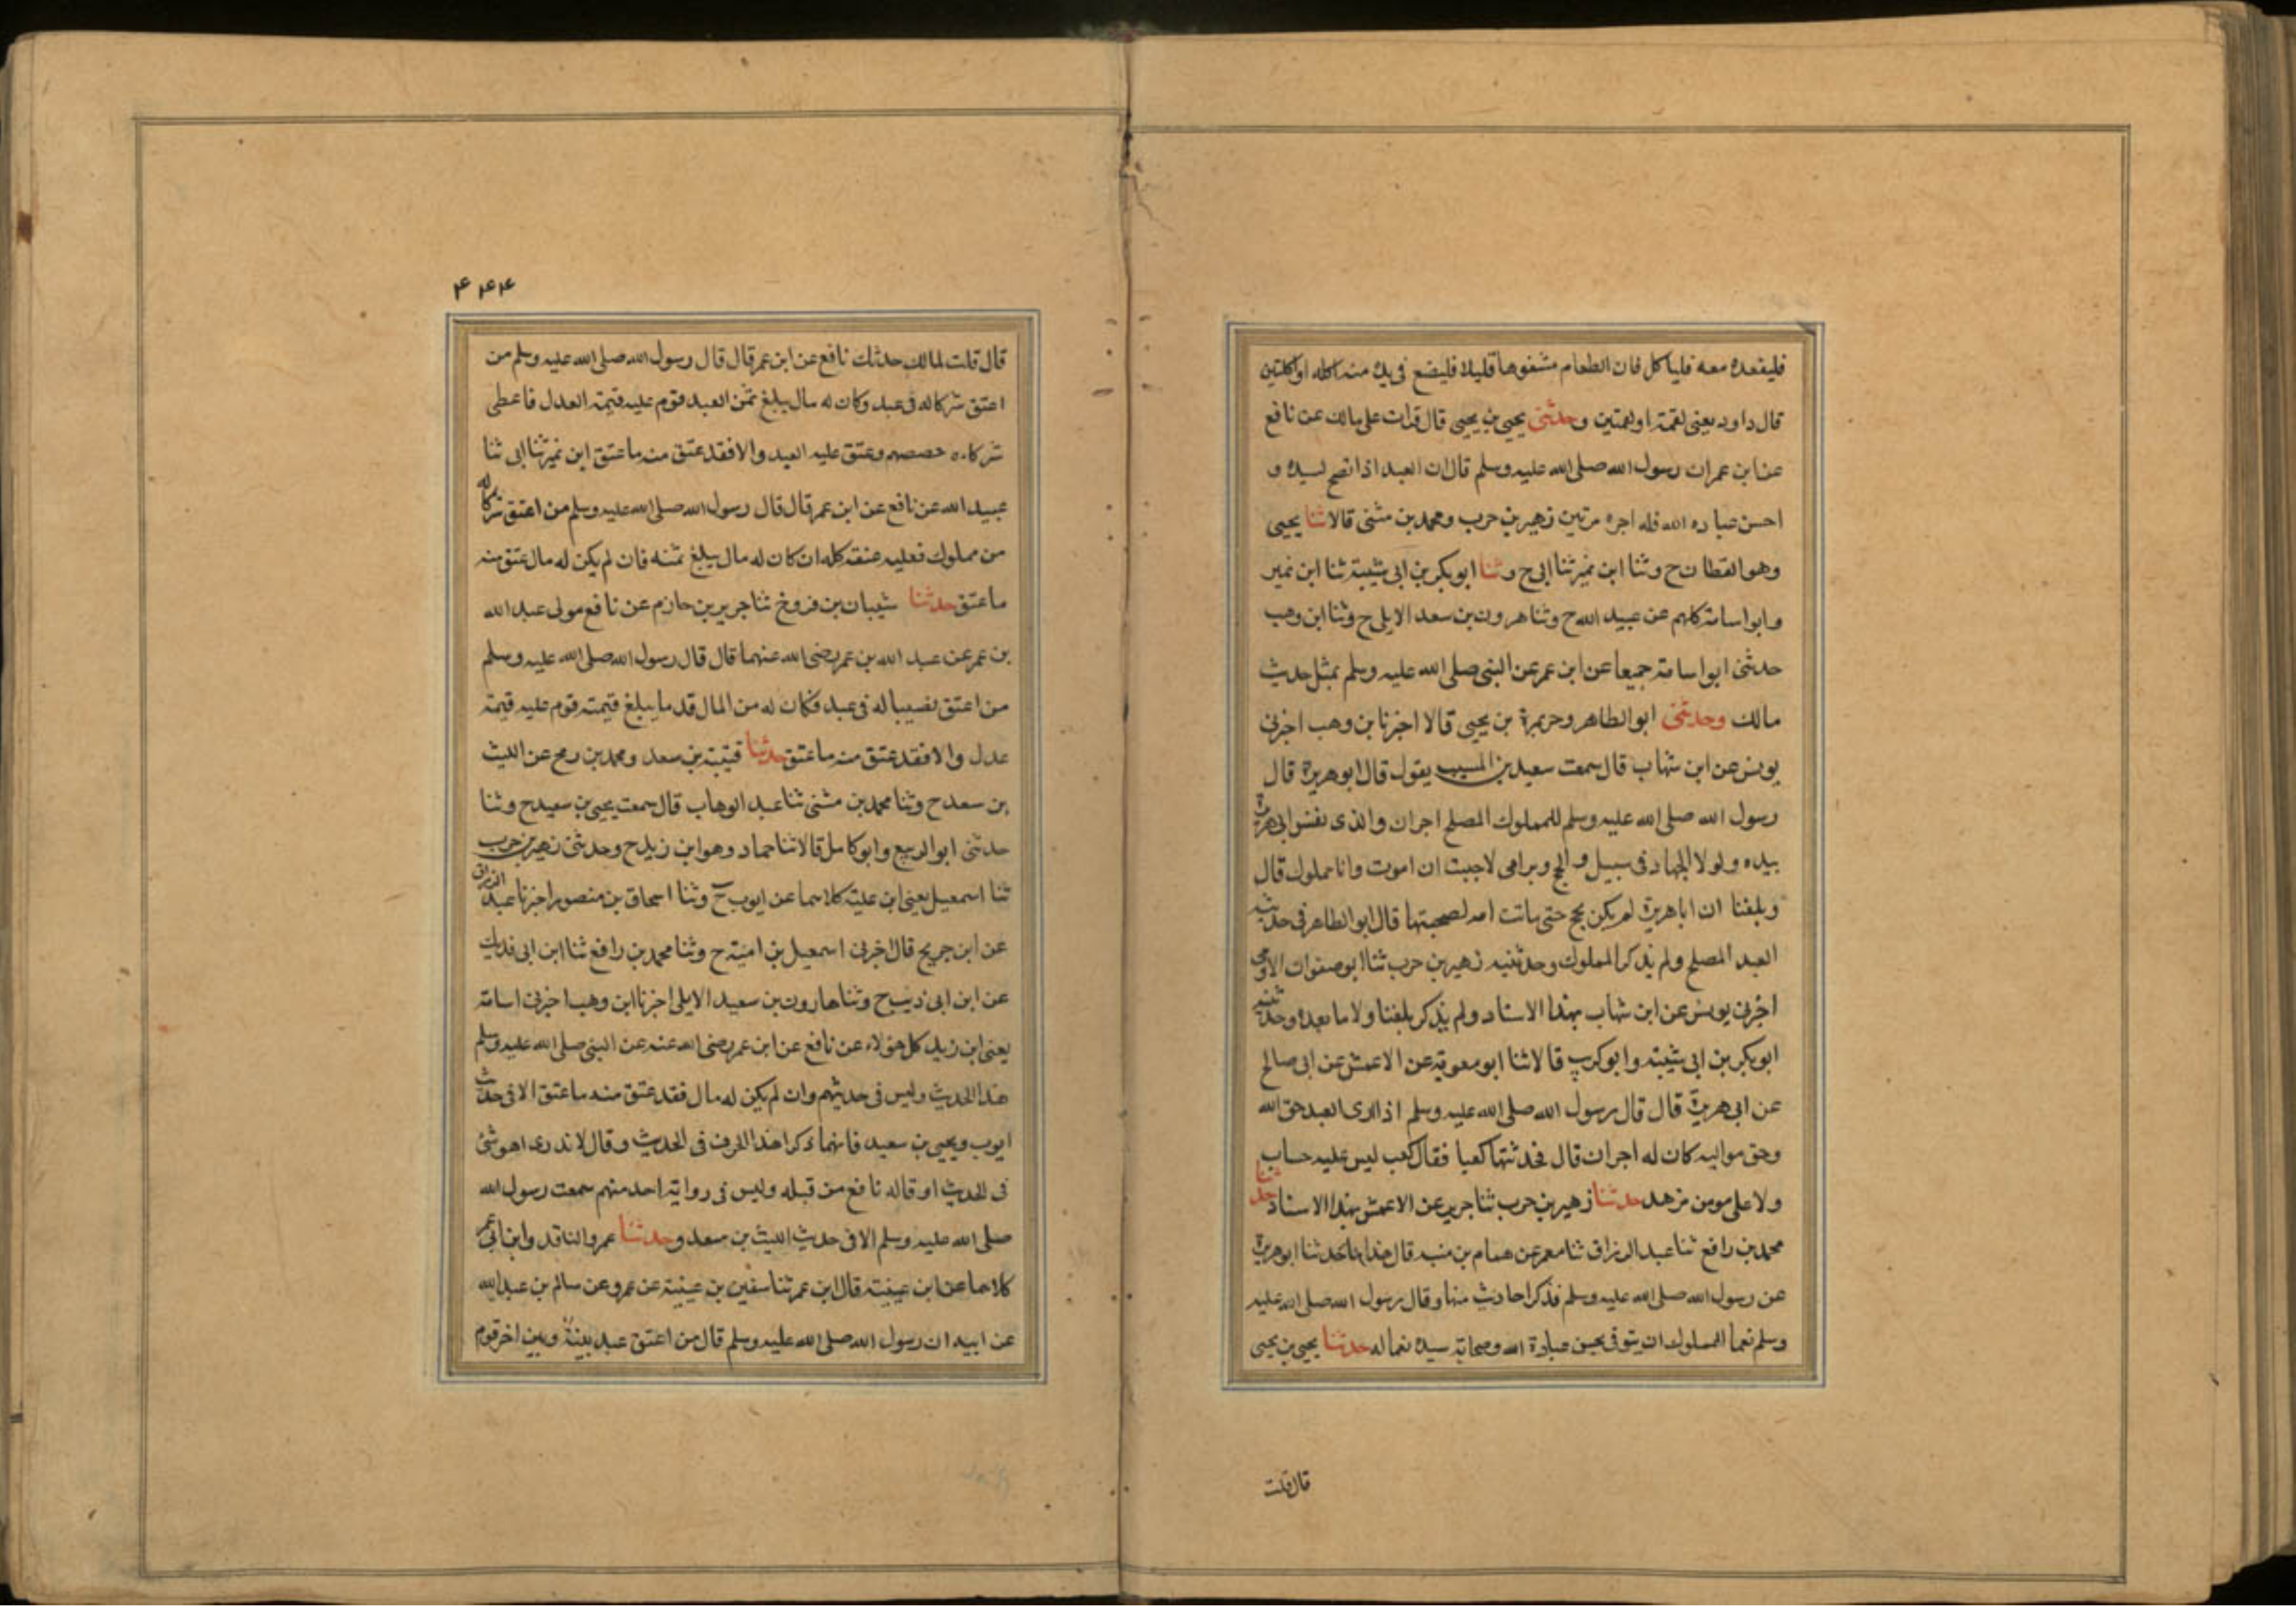 فليقعده معه فلياكل فان الطعام مشفوها قليلا فليضع فى يده منه اكلة او اكلتين
قال داود يعنى لقمة او لقمتين وحدثنى يحيى بن يحيى قال قرات على مالك عن نافع
عن ابن عمر ان رسول الله صلى الله عليه وسلم قال ان العبد اذا نصح لسيده و
احسن عباده الله فله اجره مرتين زهير بن حرب ومحمد بن مثنى قالا ثنا يحيى
وهو القطان ح وثنا ابن نمير ثنا ابى ح وثنا ابو بكر بن ابى شيبة ثنا ابن نمير
وابو اسامة كلهم عن عبيد الله ح وثنا هرون بن سعد الايلى ح وثنا ابن وهب
حدثنى ابو اسامة جميعا عن ابن عمر عن النبى صلى الله عليه وسلم بمثل حديث
مالك وحدثنى ابو الطاهر وحرملة بن يحيى قالا اخبرنا بن وهب اخبرنى
يونس عن ابن شهاب قال سمعت سعيد بن المسيب يقول قال ابو هريرة قال
رسول الله صلى الله عليه وسلم للمملوك المصلح اجران والذى نفس ابى هريرة
بيده ولولا الجهاد فى سبيل والحج وبر امى لاحببت ان اموت وانا مملوك قال
وبلغنا ان اباهريرة لم يكن يحج حتى ماتت امه لصحبتها قال ابو الطاهر فى حديثه
العبد المصلح ولم يذكر المملوك وحدثنيه زهير بن حرب ثنا ابو صفوان الاموى
اخبرنى يونس عن ابن شهاب بهذا الاسناد ولم يذكر بلغنا ولا ما بعده وحدثنيه
ابو بكر بن ابى شيبة وابو كريب قالا ثنا ابو معوية عن الاعمش عن ابى صالح
عن ابى هريرة قال قال رسول الله صلى الله عليه وسلم اذا ادى العبد حق الله
وحق مواليه كان له اجران قال فحدثتها كعبا فقال كعب ليس عليه حساب
ولا على مومن مزهد حدثنا زهير بن حرب ثنا جرير عن الاعمش بهذا الاسناد حدثنا
محمد بن رافع ثنا عبد الرزاق ثنا معمر عن همام بن منبه قال هذا ما حدثنا ابو هريرة
عن رسول الله صلى الله عليه وسلم فذكر احاديث منها وقال رسول الله صلى الله عليه
وسلم نعما للمملوك ان يتوفى يحسن عبادة الله وصحابة سيده نعما له حدثنا يحيى بن يحيى
قال قلت
۴۴۴
قال قلت لمالك حدثك نافع عن ابن عمر قال قال رسول الله صلى الله عليه وسلم من
اعتق شركا له فى عبد وكان له مال يبلغ ثمن العبد قوم عليه قيمة العدل فاعطى
شركاءه حصصهم وعتق عليه العبد والا فقد عتق منه ما عتق ابن نمير ثنا ابى ثنا
عبيد الله عن نافع عن ابن عمر قال قال رسول الله صلى الله عليه وسلم من اعتق شركا له
من مملوك فعليه عتقه كله ان كان له مال يبلغ ثمنه فان لم يكن له مال عتق منه
ما عتق حدثنا شيبان بن فروخ ثنا جرير بن حازم عن نافع مولى عبد الله
بن عمر عن عبد الله بن عمر رضى الله عنهما قال قال رسول الله صلى الله عليه وسلم
من اعتق نصيبا له فى عبد فكان له من المال قد ما يبلغ قيمته قوم عليه قيمة
عدل والا فقد عتق منه ما عتق حدثنا قتيبة بن سعد ومحمد بن رمح عن الليث
بن سعد ح وثنا محمد بن مثنى ثنا عبد الوهاب قال سمعت يحيى بن سعيد ح وثنا
حدثنى ابو الربيع وابو كامل قالا ثنا حماد وهو ابن زيد ح وحدثنى زهير بن حرب
ثنا اسمعيل يعنى ابن علية كلاهما عن ايوب ح وثنا اسحاق بن منصور اخبرنا عبد الرزاق
عن ابن جريج قال اخبرنى اسمعيل بن امية ح وثنا محمد بن رافع ثنا ابن ابى فديك
عن ابن ابى ذيب ح وثنا هارون بن سعيد الايلى اخبرنا ابن وهب اخبرنى اسامة
يعنى ابن زيد كل هولاء عن نافع عن ابن عمر رضى الله عنه عن النبى صلى الله عليه وسلم
هذا الحديث وليس فى حديثهم وان لم يكن له مال فقد عتق منه ما عتق الا فى حديث
ايوب ويحيى بن سعيد فانهما ذكرا هذا الحرف فى الحديث وقال لا ندرى اهو شئ
فى الحديث او قاله نافع من قبله وليس فى رواية احد منهم سمعت رسول الله
صلى الله عليه وسلم الا فى حديث الليث بن سعد وحدثنا عمرو الناقد وابن ابى عمر
كلاهما عن ابن عيينة قال ابن عمر ثنا سفين بن عيينة عن عمرو عن سالم بن عبد الله
عن ابيه ان رسول الله صلى الله عليه وسلم قال من اعتق عبد بينه وبين اخر قوم